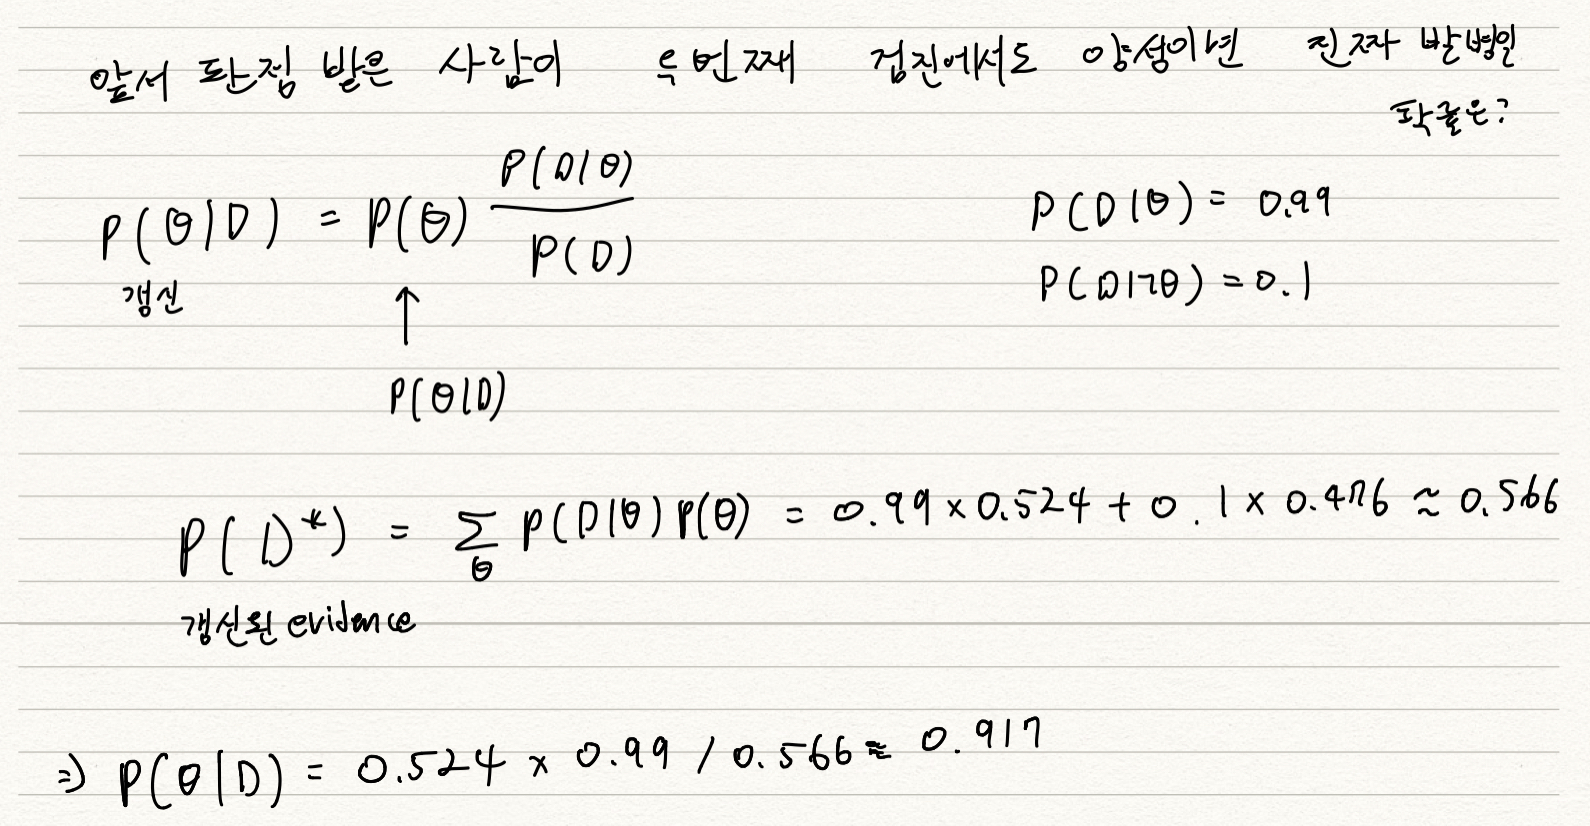 앞서 판정 받은 사람이 두번째 검진에서도 양성이면 진짜 발병일
확률은?
P(θ|D) = P(θ) P(D|θ) / P(D)
P(D|θ) = 0.99
P(D|¬θ) = 0.1
갱신
↑
P(θ|D)
P(D*) = Σ_θ P(D|θ) P(θ) = 0.99 × 0.524 + 0.1 × 0.476 ≈ 0.566
갱신된 evidence
⇒ P(θ|D) = 0.524 × 0.99 / 0.566 ≈ 0.917